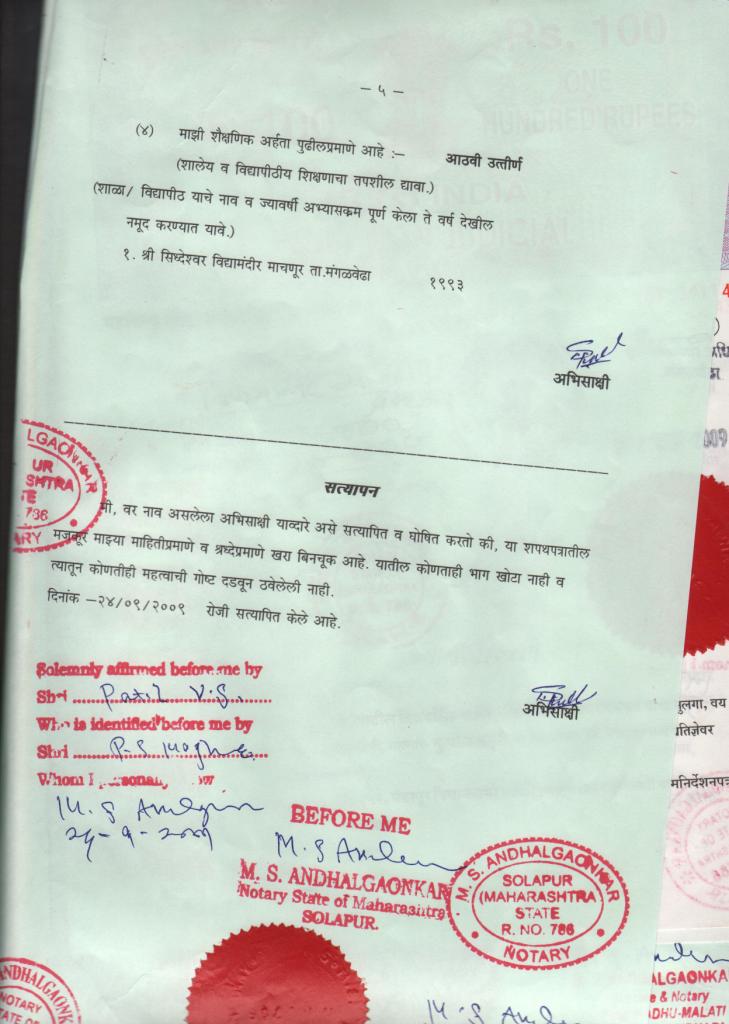 Rs. 100
ONE
HUNDRED RUPEES
INDIA
– ५ –
(४) माझी शैक्षणिक अर्हता पुढीलप्रमाणे आहे :– आठवी उत्तीर्ण
(शालेय व विद्यापीठीय शिक्षणाचा तपशील द्यावा.)
(शाळा/ विद्यापीठ याचे नाव व ज्यावर्षी अभ्यासक्रम पूर्ण केला ते वर्ष देखील
नमूद करण्यात यावे.)
१. श्री सिध्देश्वर विद्यामंदीर माचणूर ता.मंगळवेढा १९९३
अभिसाक्षी
सत्यापन
मी, वर नाव असलेला अभिसाक्षी याव्दारे असे सत्यापित व घोषित करतो की, या शपथपत्रातील
मजकूर माझ्या माहितीप्रमाणे व श्रध्देप्रमाणे खरा बिनचूक आहे. यातील कोणताही भाग खोटा नाही व
त्यातून कोणतीही महत्वाची गोष्ट दडवून ठवेलेली नाही.
दिनांक –२४/०९/२००९ रोजी सत्यापित केले आहे.
अभिसाक्षी
Solemnly affirmed before me by
Shri Patil V.S.
Who is identified before me by
Shri P.S
Whom I
BEFORE ME
M. S. ANDHALGAONKAR
Notary State of Maharashtra
SOLAPUR.
M. S. ANDHALGAONKAR
SOLAPUR
(MAHARASHTRA
STATE
R. NO. 786
NOTARY
ANDHALGAONKA
NOTARY
ुलगा, वय
तिज्ञेवर
मनिर्देशनपत्र
ALGAONKA
e & Notary
DHU-MALATI